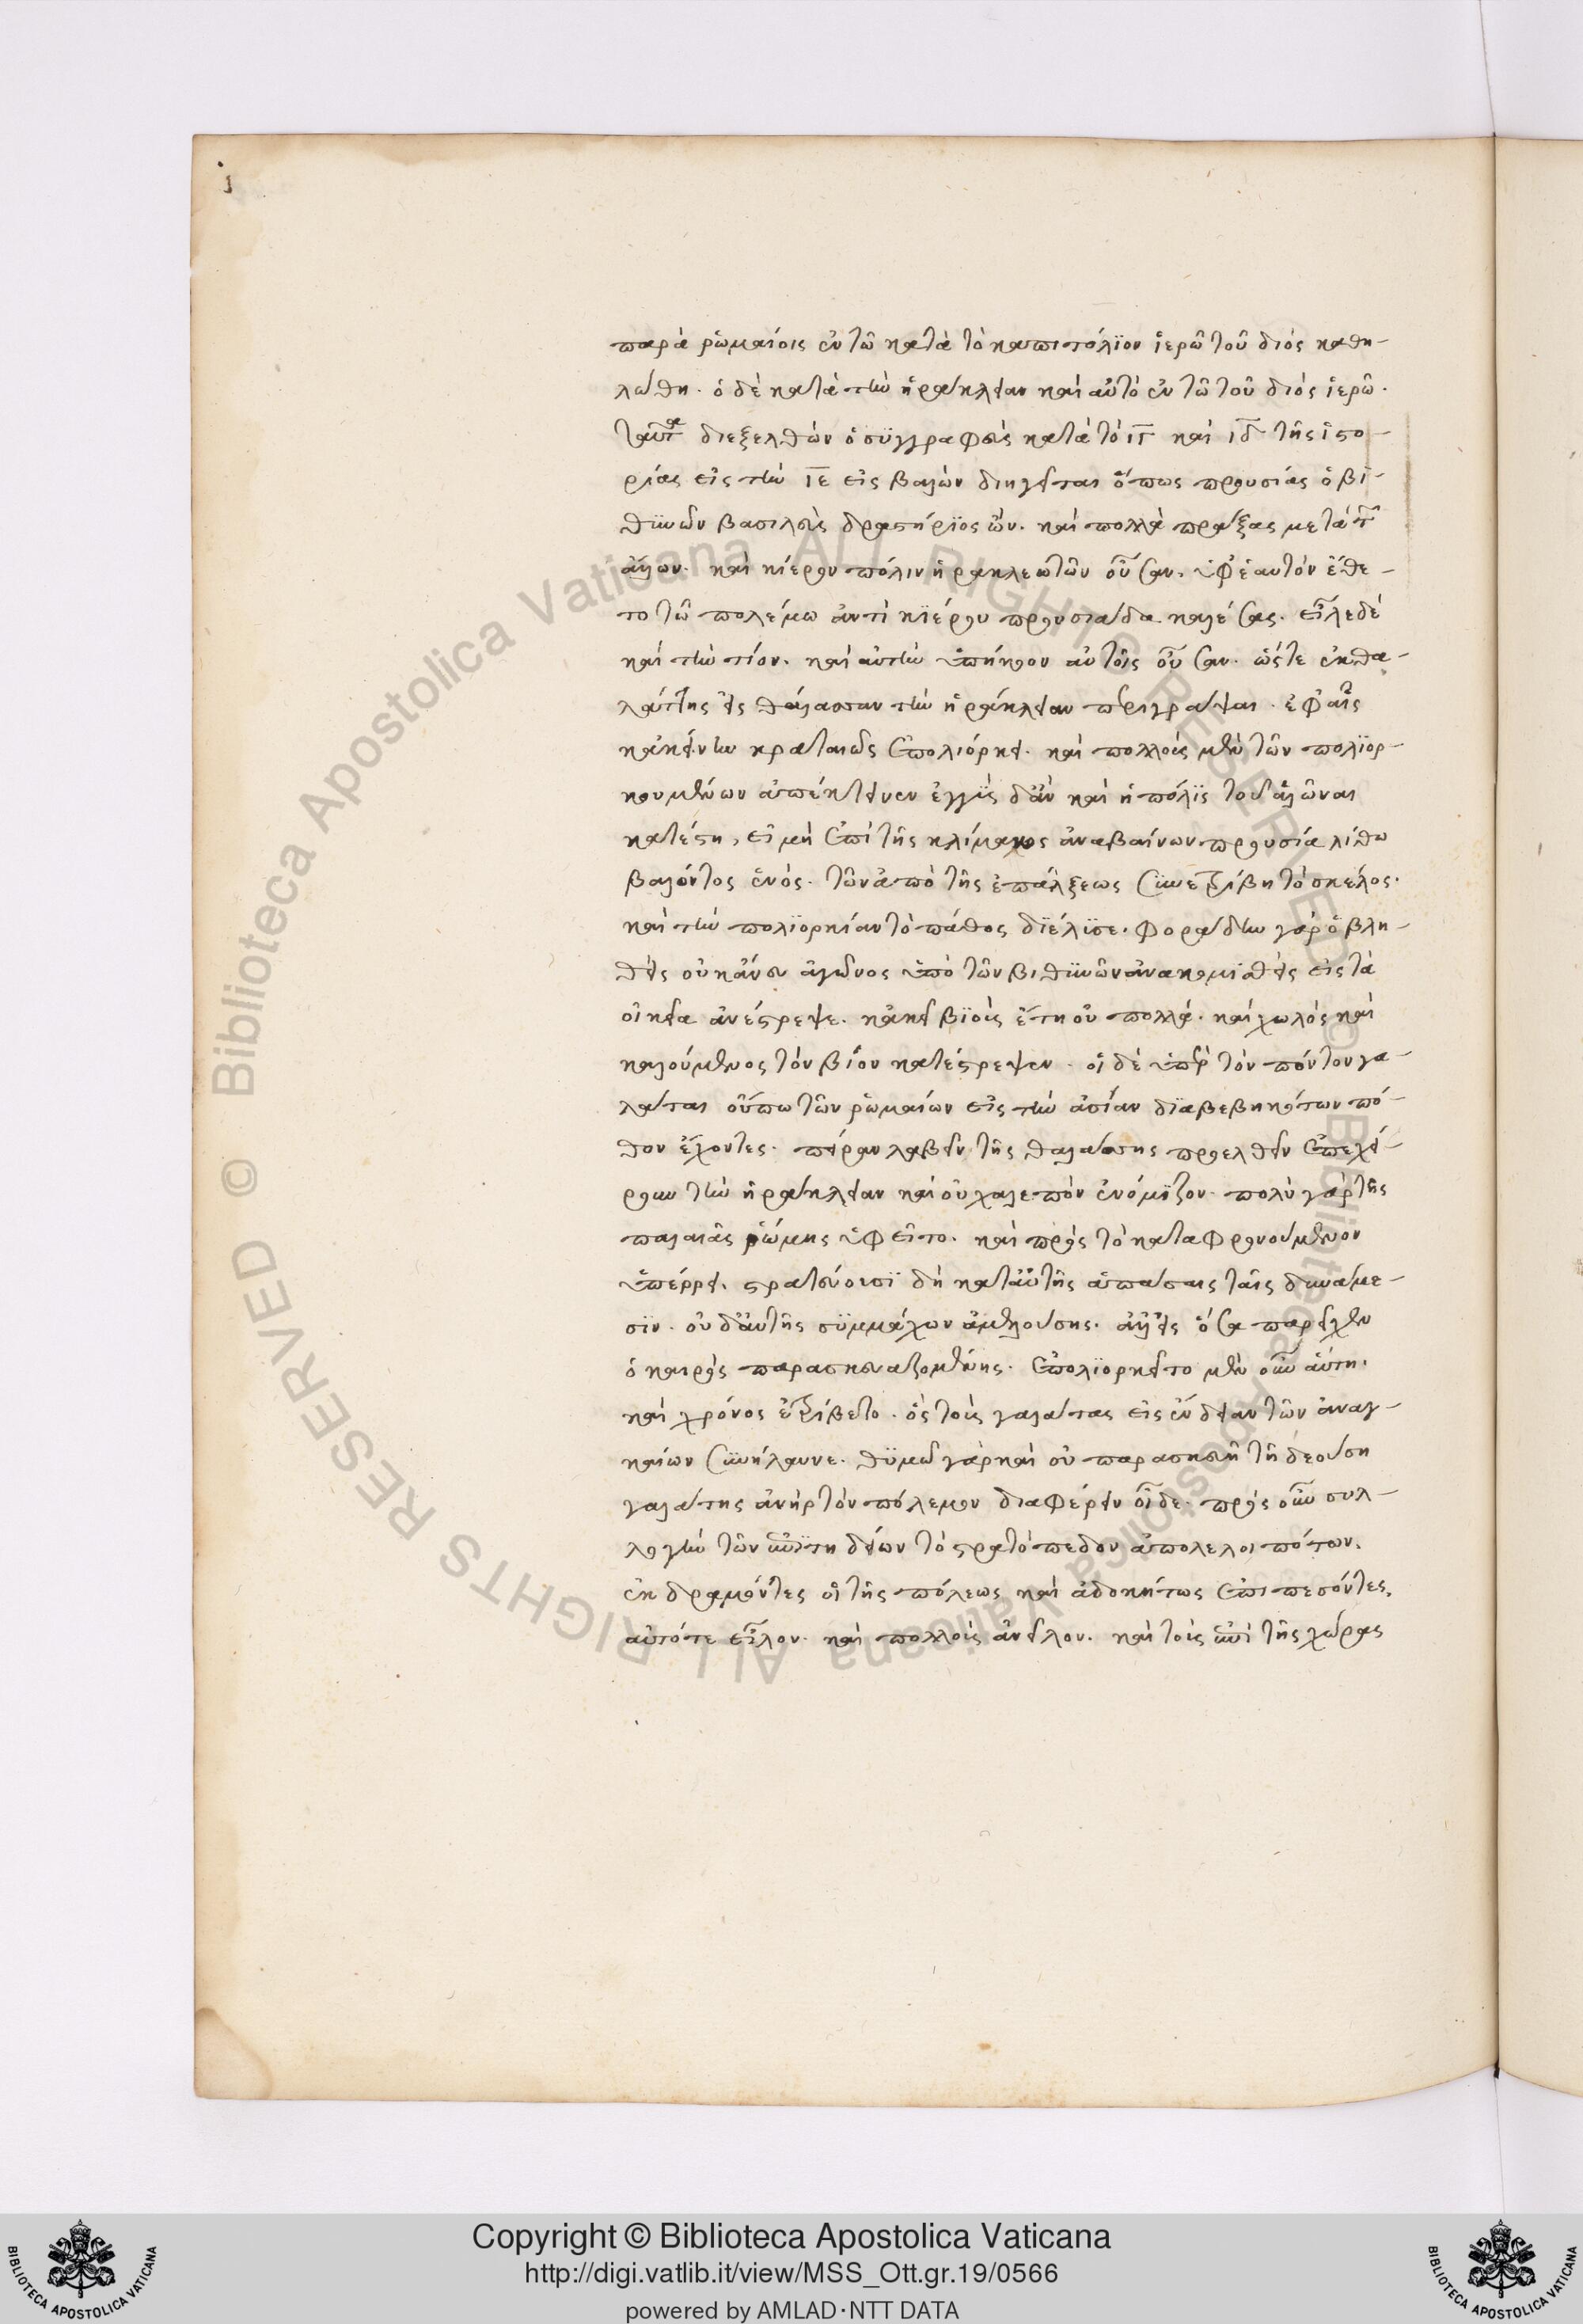 παρὰ ῥωμαίοις ἐν τῶ κατὰ τὸ καπιτόλϊον ἱερῶ τοῦ διός καθη-
λώθη. ὁ δὲ κατὰ τὴν ἡράκλειαν καὶ αὐτὸ ἐν τῶ τοῦ διὸς ἱερῶ.
ταῦτα διεξελθὼν ὁ συγγραφεὺς κατὰ τὸ ιγ καὶ ιδ τῆς ἱστο-
ρίας εἰς τὴν ιε εἰς βαλὼν διηγεῖται ὅπως προυσίας ὁ βι-
θϋνῶν βασιλεὺς δραστήρϊος ὤν. καὶ πολλὰ πράξας μετὰ τῶν
ἄλλων. καὶ κίερον πόλιν ἡρακλεωτῶν οὖσαν. ὑφ' ἑαυτὸν ἔθε-
το τῶ πολέμω ἀντὶ κϊέρου προυσιάδα καλέσας. εἷλε δὲ
καὶ τὴν τίον. καὶ αὐτὴν ὑπήκοον αὐτοῖς οὖσαν. ὥστε ἐκ θα-
λάττης εἰς θάλασσαν τὴν ἡράκλειαν περιγράψαι. ἐφ' αἷς
κἀκείνην κραταιῶς ἐπολιόρκει. καὶ πολλοὺς μὲν τῶν πολϊορ-
κουμένων ἀπέκτεινεν ἐγγὺς δ' ἂν καὶ ἡ πόλϊς τοῦ ἁλῶναι
κατέστη, εἰ μὴ ἐπὶ τῆς κλίμακος ἀναβαίνων προυσία λίθω
βαλόντος ἑνός. τῶν ἀπὸ τῆς ἐπάλξεως συνετρίβη τὸ σκέλος.
καὶ τὴν πολϊορκίαν τὸ πάθος δϊέλϊσε. φοράδην γὰρ ὁ βλη-
θεὶς οὐκ ἄνευ ἀγῶνος ὑπὸ τῶν βιθϋνῶν ἀνακομϊσθεὶς εἰς τὰ
οἰκεῖα ἀνέστρεψε. κἀκεῖ βϊοὺς ἔτη οὐ πολλά. καὶ χωλὸς καὶ
καλούμενος τὸν βίον κατέστρεψεν. οἱ δὲ ὑπὲρ τὸν πόντον γα-
λάται οὔπω τῶν ῥωμαίων εἰς τὴν ἀσίαν δϊαβεβηκότων πό-
θον ἔχοντες. πεῖραν λαβεῖν τῆς θαλάσσης προελθεῖν ἐπεχεί-
ρουν τὴν ἡράκλειαν καὶ οὐ χαλεπὸν ἐνόμϊζον. πολὺ γὰρ τῆς
παλαιᾶς ῥώμης ὑφεῖτο. καὶ πρὸς τὸ καταφρονούμενον
ὑπέρρει. στρατεύουσϊ δὴ κατ' αὐτῆς ἁπάσαις ταῖς δυνάμε-
σϊν. οὐδ' αὐτῆς συμμάχων ἀμελούσης. ἀλλ' εἰς ὅσα παρεῖχεν
ὁ καιρὸς παρασκευαζομένης. ἐπολϊορκεῖτο μὲν οὖν αὕτη.
καὶ χρόνος ἐτρίβετο. ὃς τοὺς γαλάτας εἰς ἔνδειαν τῶν ἀναγ-
καίων συνήλαυνε. θϋμῶ γὰρ καὶ οὐ παρασκευῆ τῆ δεούση
γαλάτης ἀνὴρ τὸν πόλεμον διαφέρειν οἶδε. πρὸς οὖν συλ-
λογὴν τῶν ἐπϊτηδείων τὸ στρατόπεδον ἀπολελοιπότων.
ἐκδραμόντες οἱ τῆς πόλεως καὶ ἀδοκήτως ἐπιπεσόντες.
αὐτό τε εἷλον. καὶ πολλοὺς ἀνεῖλον. καὶ τοὺς ἐπὶ τῆς χώρας
Copyright © Biblioteca Apostolica Vaticana
http://digi.vatlib.it/view/MSS_Ott.gr.19/0566
powered by AMLAD·NTT DATA